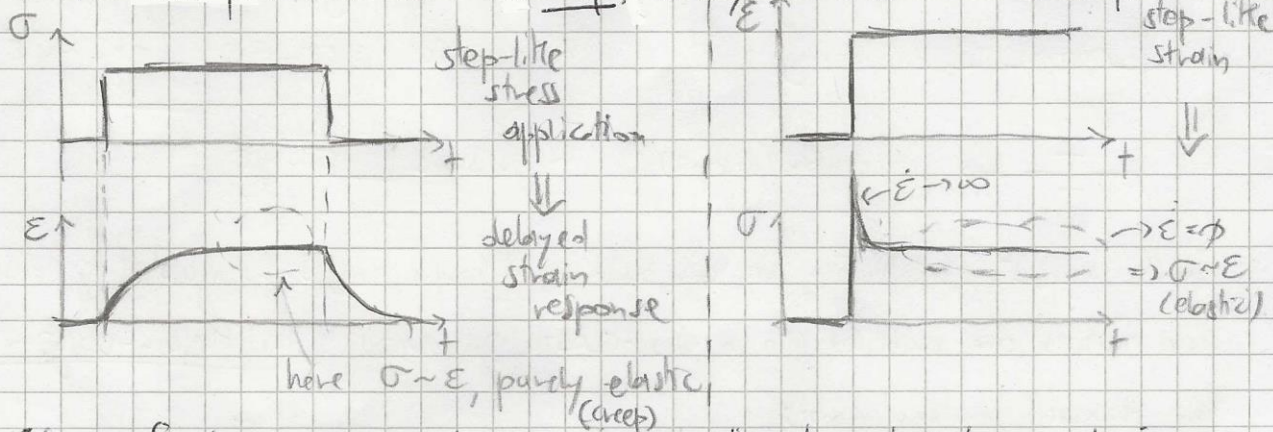 σ
step-like
stress
application
t
⇓
ε
delayed
strain
response
t
here σ~ε, purely elastic,
(creep)
ε
step-like
strain
t
⇓
σ
← ε̇ → ∞
→ ε̇ = φ
⇒ σ~ε
(elastic)
t